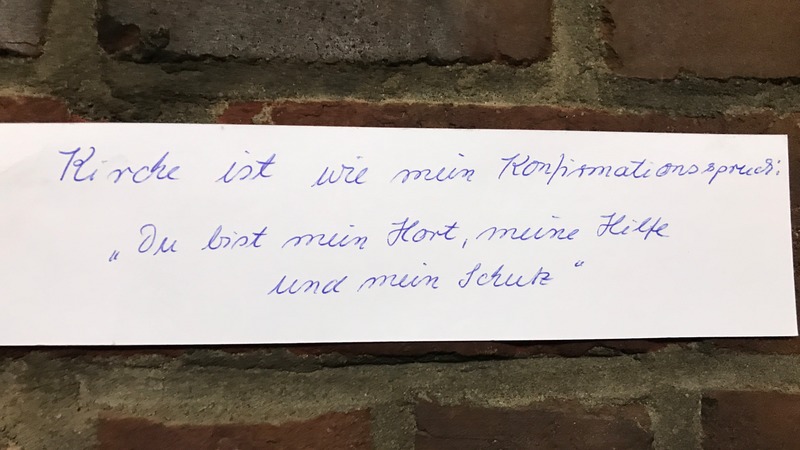 Kirche ist wie mein Konfirmationsspruch:
„Du bist mein Hort, meine Hilfe
und mein Schutz“